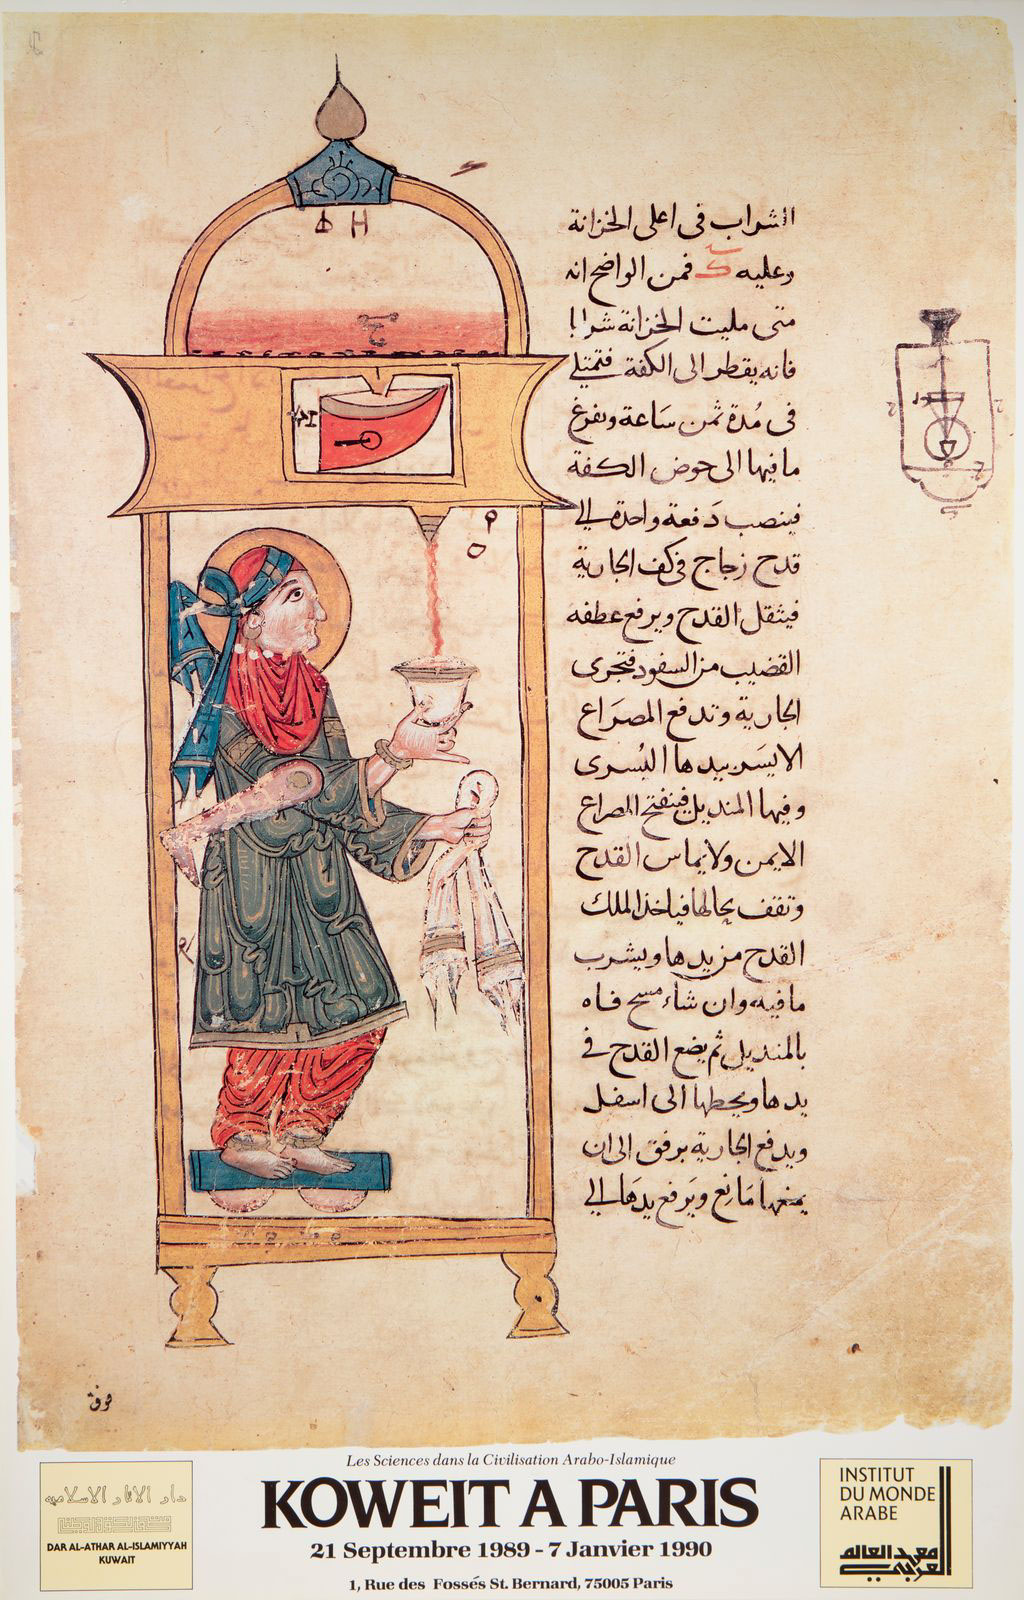 الشراب فى اعلى الخزانة
وعليه كـ فمن الواضح انه
متى مليت الخزانة شرابا
فانه يقطر الى الكفة فتمتلى
فى مُدة ثمن سَاعة وتفرغ
ما فيها الى حوض الكفة
فينصب دَفعة واحدة الى
قدح زجاج فى كف الجارية
فيثقل القدح ويرفع عطفه
القضيب من السفود فتجرى
الجارية وتدفع المصرَاع
الايسَر بيدها اليُسرى
وفيها المنديل فينفتح المصراع
الايمن ولا يماس القدح
وتقف بحالها فياخذ الملك
القدح من يدها ويشرب
ما فيه وان شاء مسح فاه
بالمنديل ثم يضع القدح فى
يدها ويحطها الى اسفل
ويدفع الجارية برفق الى ان
يمنعها مَانع ويَرفع يدهَا الى
Les Sciences dans la Civilisation Arabo-Islamique
KOWEIT A PARIS
21 Septembre 1989 - 7 Janvier 1990
1, Rue des Fossés St. Bernard, 75005 Paris
دار الاثار الاسلاميه
DAR AL-ATHAR AL-ISLAMIYYAH
KUWAIT
INSTITUT
DU MONDE
ARABE
معهد العالم
العربي